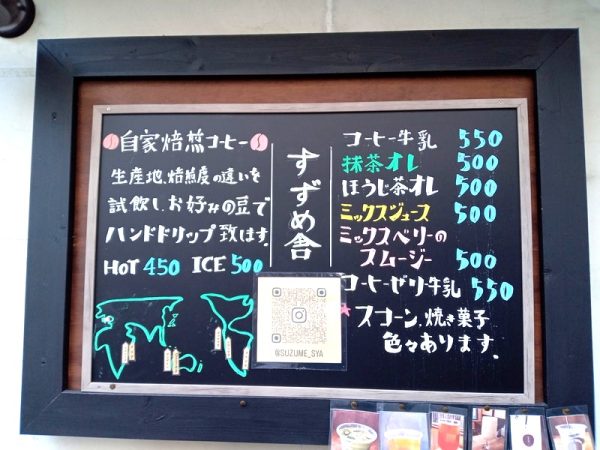 自家焙煎コーヒー
生産地、焙煎度の違いを
試飲し、お好みの豆で
ハンドドリップ致はす。
HOT 450 ICE 500
すずめ舎
@SUZUME_SYA
コーヒー牛乳 550
抹茶オレ 500
ほうじ茶オレ 500
ミックスジュース 500
ミックスベリーの
スムージー 500
コーヒーゼリー牛乳 550
スコーン、焼き菓子
色々あります。